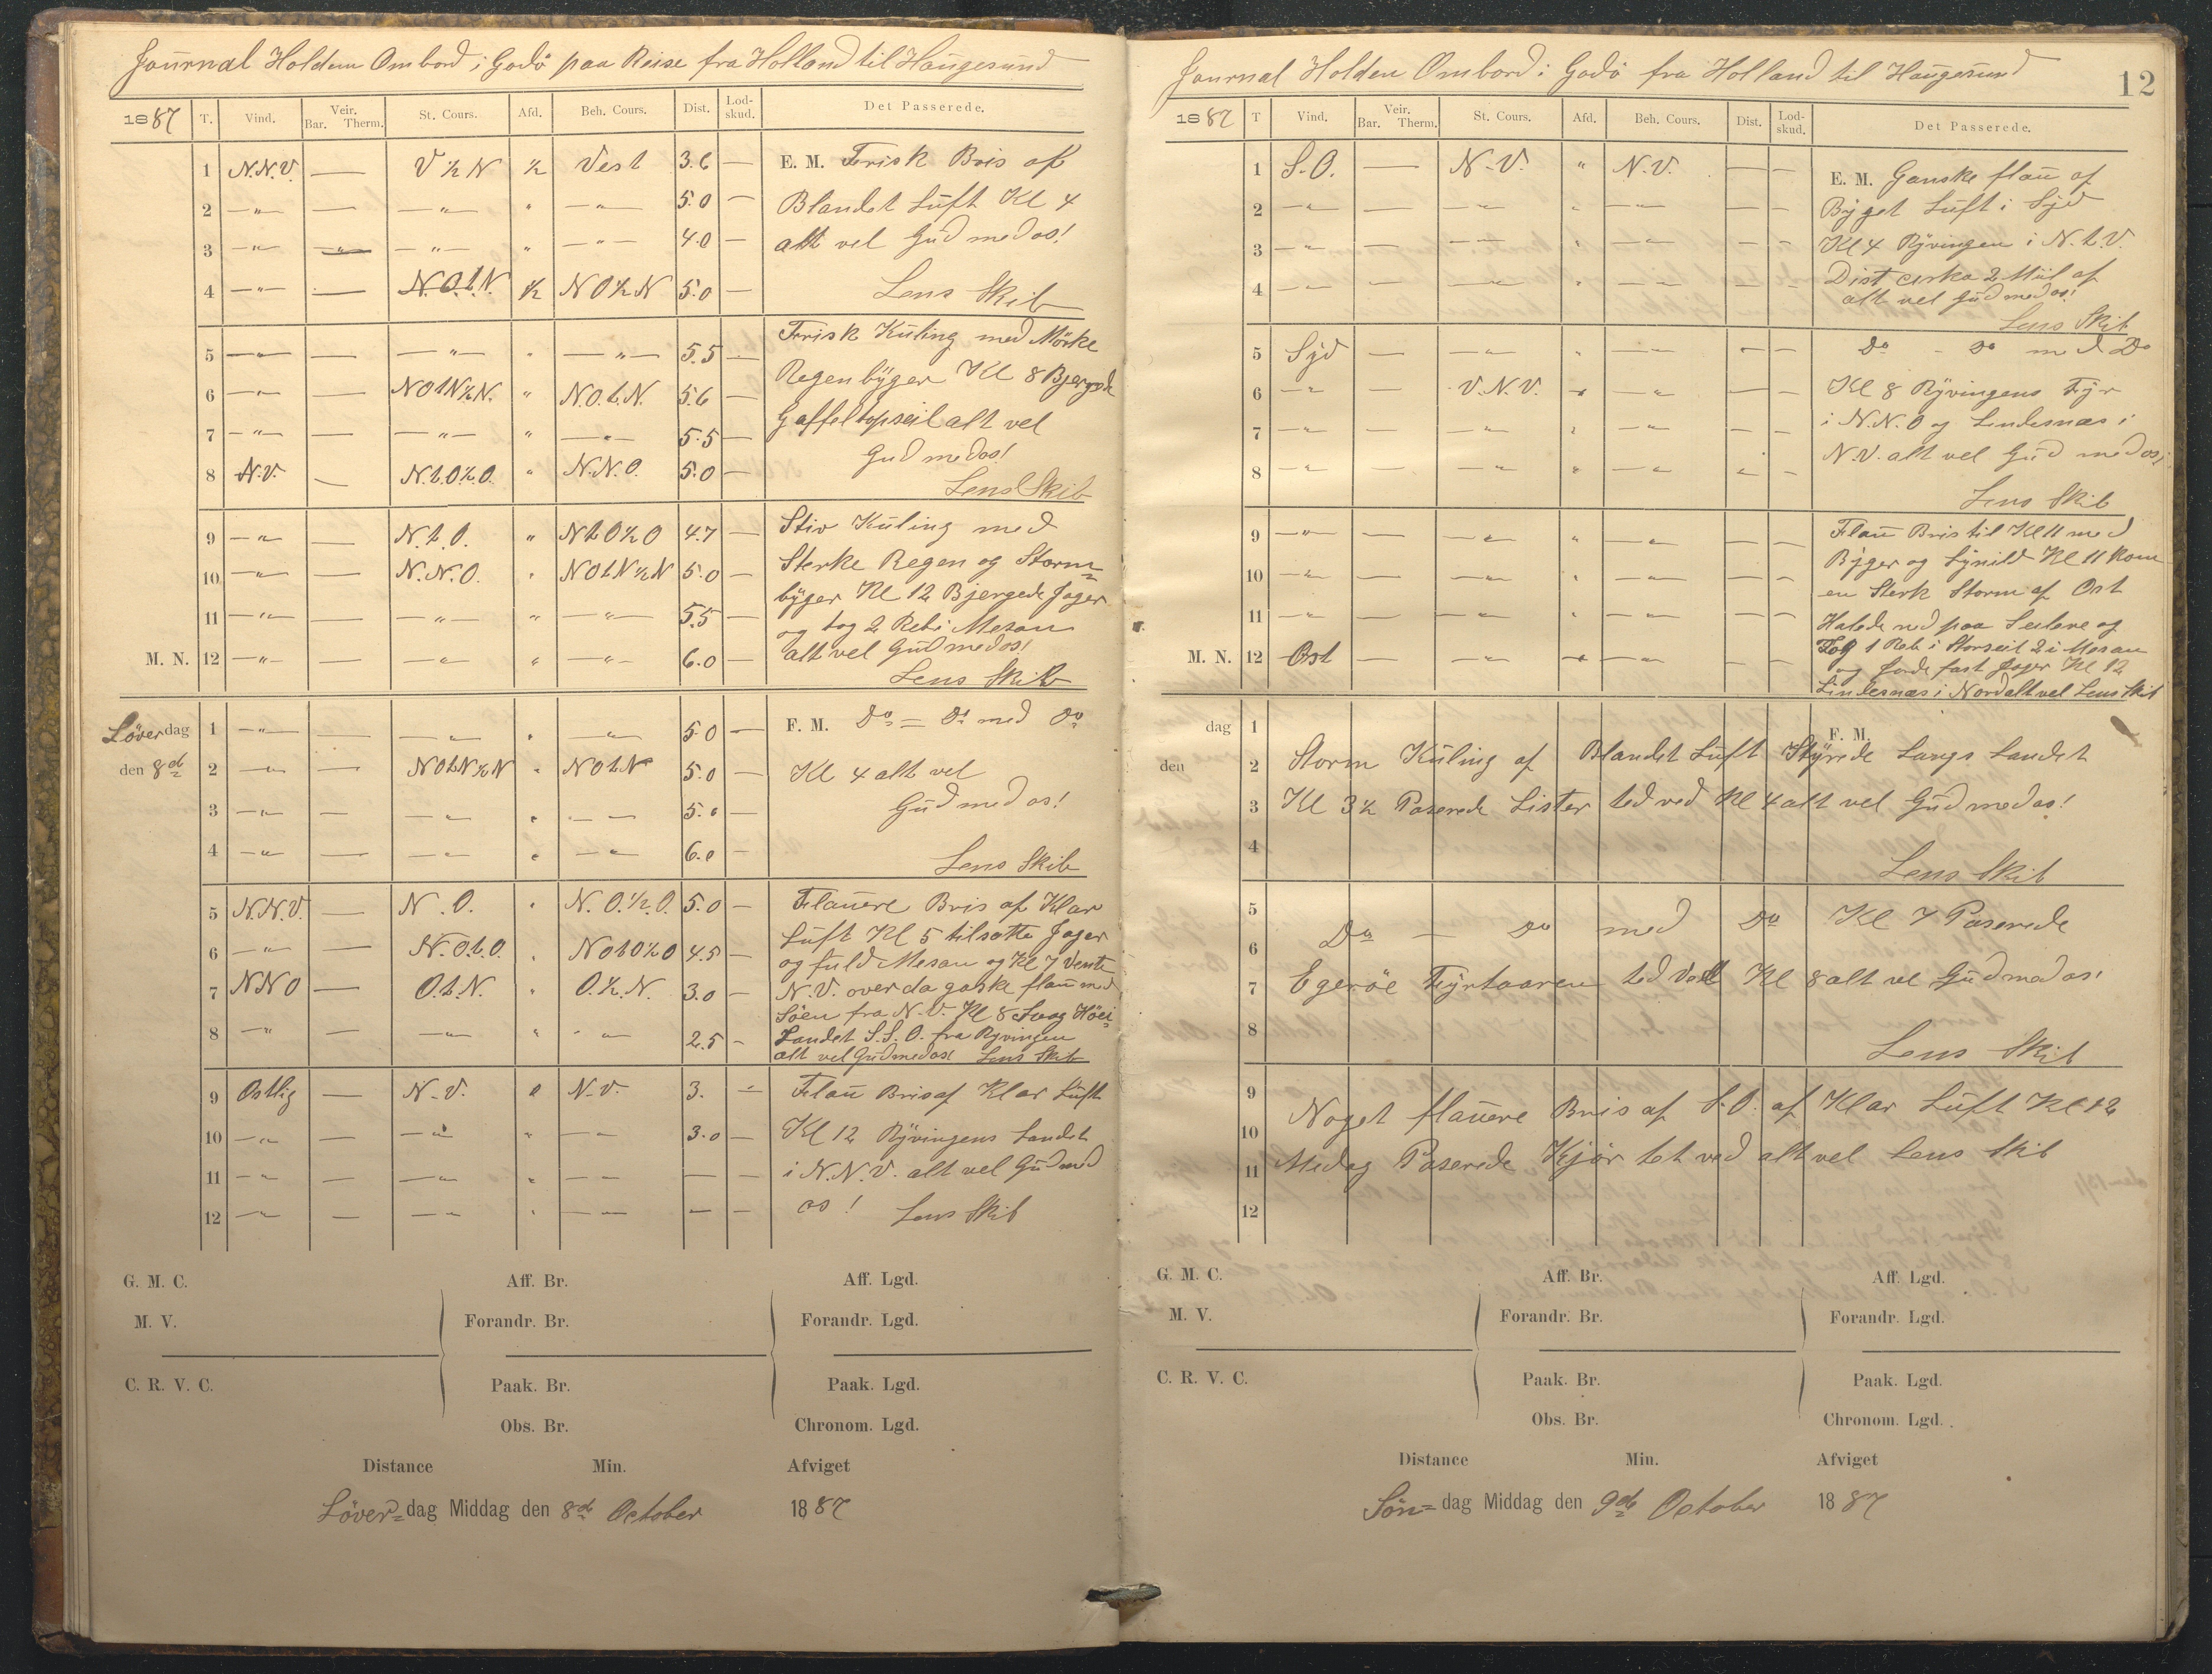 Journal Holden Ombord i Godö paa Reise fra Holland til Haugesund
1887 T. Vind. Veir. Bar. Therm. St. Cours. Afd. Beh. Cours. Dist. Lod-skud. Det Passerede.
1 N.N.V. — V ½ N ½ Vest 3.6 — E. M. Frisk Bris af
2 —"— — —"— " —"— 5.0 — Blandet Luft Kl 4
3 —"— —"— —"— " —"— 4.0 — alt vel Gud med os!
4 —"— — N.O.t.N. ½ NO½N 5.0 — Lens Skib
5 —"— — —"— " —"— 5.5 — Frisk Kuling med Mörke
6 —"— — NOtN½N. " N.O.t.N. 5.6 — Regenbyger Kl 8 Bjergede
7 —"— — —"— " —"— 5.5 — Gaffeltopseil alt vel
8 N.V. — N.t.O½.O. " N.N.O. 5.0 — Gud med os!
Lens Skib
9 —"— — N.t.O. " NtO½O 4.7 — Stiv Kuling med
10 —"— — N.N.O. " NOtN½N 5.0 — Sterke Regen og Storm=
11 —"— — —"— " —"— 5.5 — byger Kl 12 Bjergede Jager
og tog 2 Reb i Mesan
M. N. 12 —"— — —"— " —"— 6.0 — alt vel Gud med os!
Lens Skib
Löverdag 1 —"— — —"— " —"— 5.0 — F. M. Do = Do med Do
den 8de 2 —"— — NOtN½N " NOtN 5.0 — Kl 4 alt vel
3 —"— — —"— " —"— 5.0 — Gud med os!
4 —"— — —"— " —"— 6.0 — Lens Skib
5 N.N.V. — N.O. " N.O.½.O. 5.0 — Flauere Bris af Klar
6 —"— — N.O.t.O. " NOtO½O 4.5 — Luft Kl 5 tilsatte Jager
og fuld Mesan og Kl 7 Vente
7 NNO — O.t.N. " O.½.N. 3.0 — N.V. over da gaske flau med
Söen fra N.V. Kl 8
8 —"— — —"— " —"— 2.5 — Landet S.S.O. fra Ryvingen
alt vel Gud med os! Lens Skib
9 Ostlig — N.V. " N.V. 3. — Flau Bris af Klar Luft
10 —"— — —"— " —"— 3.0 — Kl 12 Ryvingens Landet
11 —"— — —"— " —"— — — i N.N.V. alt vel Gud med
12 —"— — —"— " —"— — — os! Lens Skib
G. M. C. Aff. Br. Aff. Lgd.
M. V. Forandr. Br. Forandr. Lgd.
C. R. V. C. Paak. Br. Paak. Lgd.
Obs. Br. Chronom. Lgd.
Distance Min. Afviget
Löver=dag Middag den 8de October 1887
Journal Holden Ombord i Godö fra Holland til Haugesund
12
1887 T Vind. Veir. Bar. Therm. St. Cours. Afd. Beh. Cours. Dist. Lod-skud. Det Passerede.
1 S.O. — N.V. " N.V. — — E. M. Ganske flau af
2 —"— — —"— " —"— — — Byget Luft i Syd
3 —"— — —"— " —"— — — Kl 4 Ryvingen i N.t.V.
4 —"— — —"— " —"— — — Dist cirka 2 Miil af
alt vel Gud med os!
Lens Skib
5 Syd — —"— " —"— — — Do - Do med Do
6 —"— — V.N.V. " —"— — — Kl 8 Ryvingens Fyr
7 —"— — —"— " —"— — — i N.N.O og Lindesnæs i
8 —"— — —"— " —"— — — N.V. alt vel Gud med os!
Lens Skib
9 —"— — —"— " —"— — — Flau Bris til Kl 11 med
10 —"— — —"— " —"— — — Byger og Lynild Kl 11 kom
en Sterk Storm af Ost
11 —"— — —"— " —"— — — Halede ned paa Seilene og
M. N. 12 Ost — —"— " —"— — — Tog 1 Reb i Storseil 2 i Mesan
og Gjorde fast Jager Kl 12
Lindesnæs i Nord alt vel Lens Skib
dag 1 F. M.
den 2 Storm Kuling af Blandet Luft Styrede Langs Landet
3 Kl 3½ Paserede Lister ted ved Kl 4 alt vel Gud med os!
4 Lens Skib
5 Do — Do med Do Kl 7 Paserede
6
7 Egeröe Fyrtaaren ted Ved Kl 8 alt vel Gud med os!
8 Lens Skib
9 Noget flauere Bris af S.O. af Klar Luft Kl 12
10
11 Medag Paserede Kjör tet ved alt vel Lens Skib
12
G. M. C. Aff. Br. Aff. Lgd.
M. V. Forandr. Br. Forandr. Lgd.
C. R. V. C. Paak. Br. Paak. Lgd.
Obs. Br. Chronom. Lgd.
Distance Min. Afviget
Sön=dag Middag den 9de October 1887